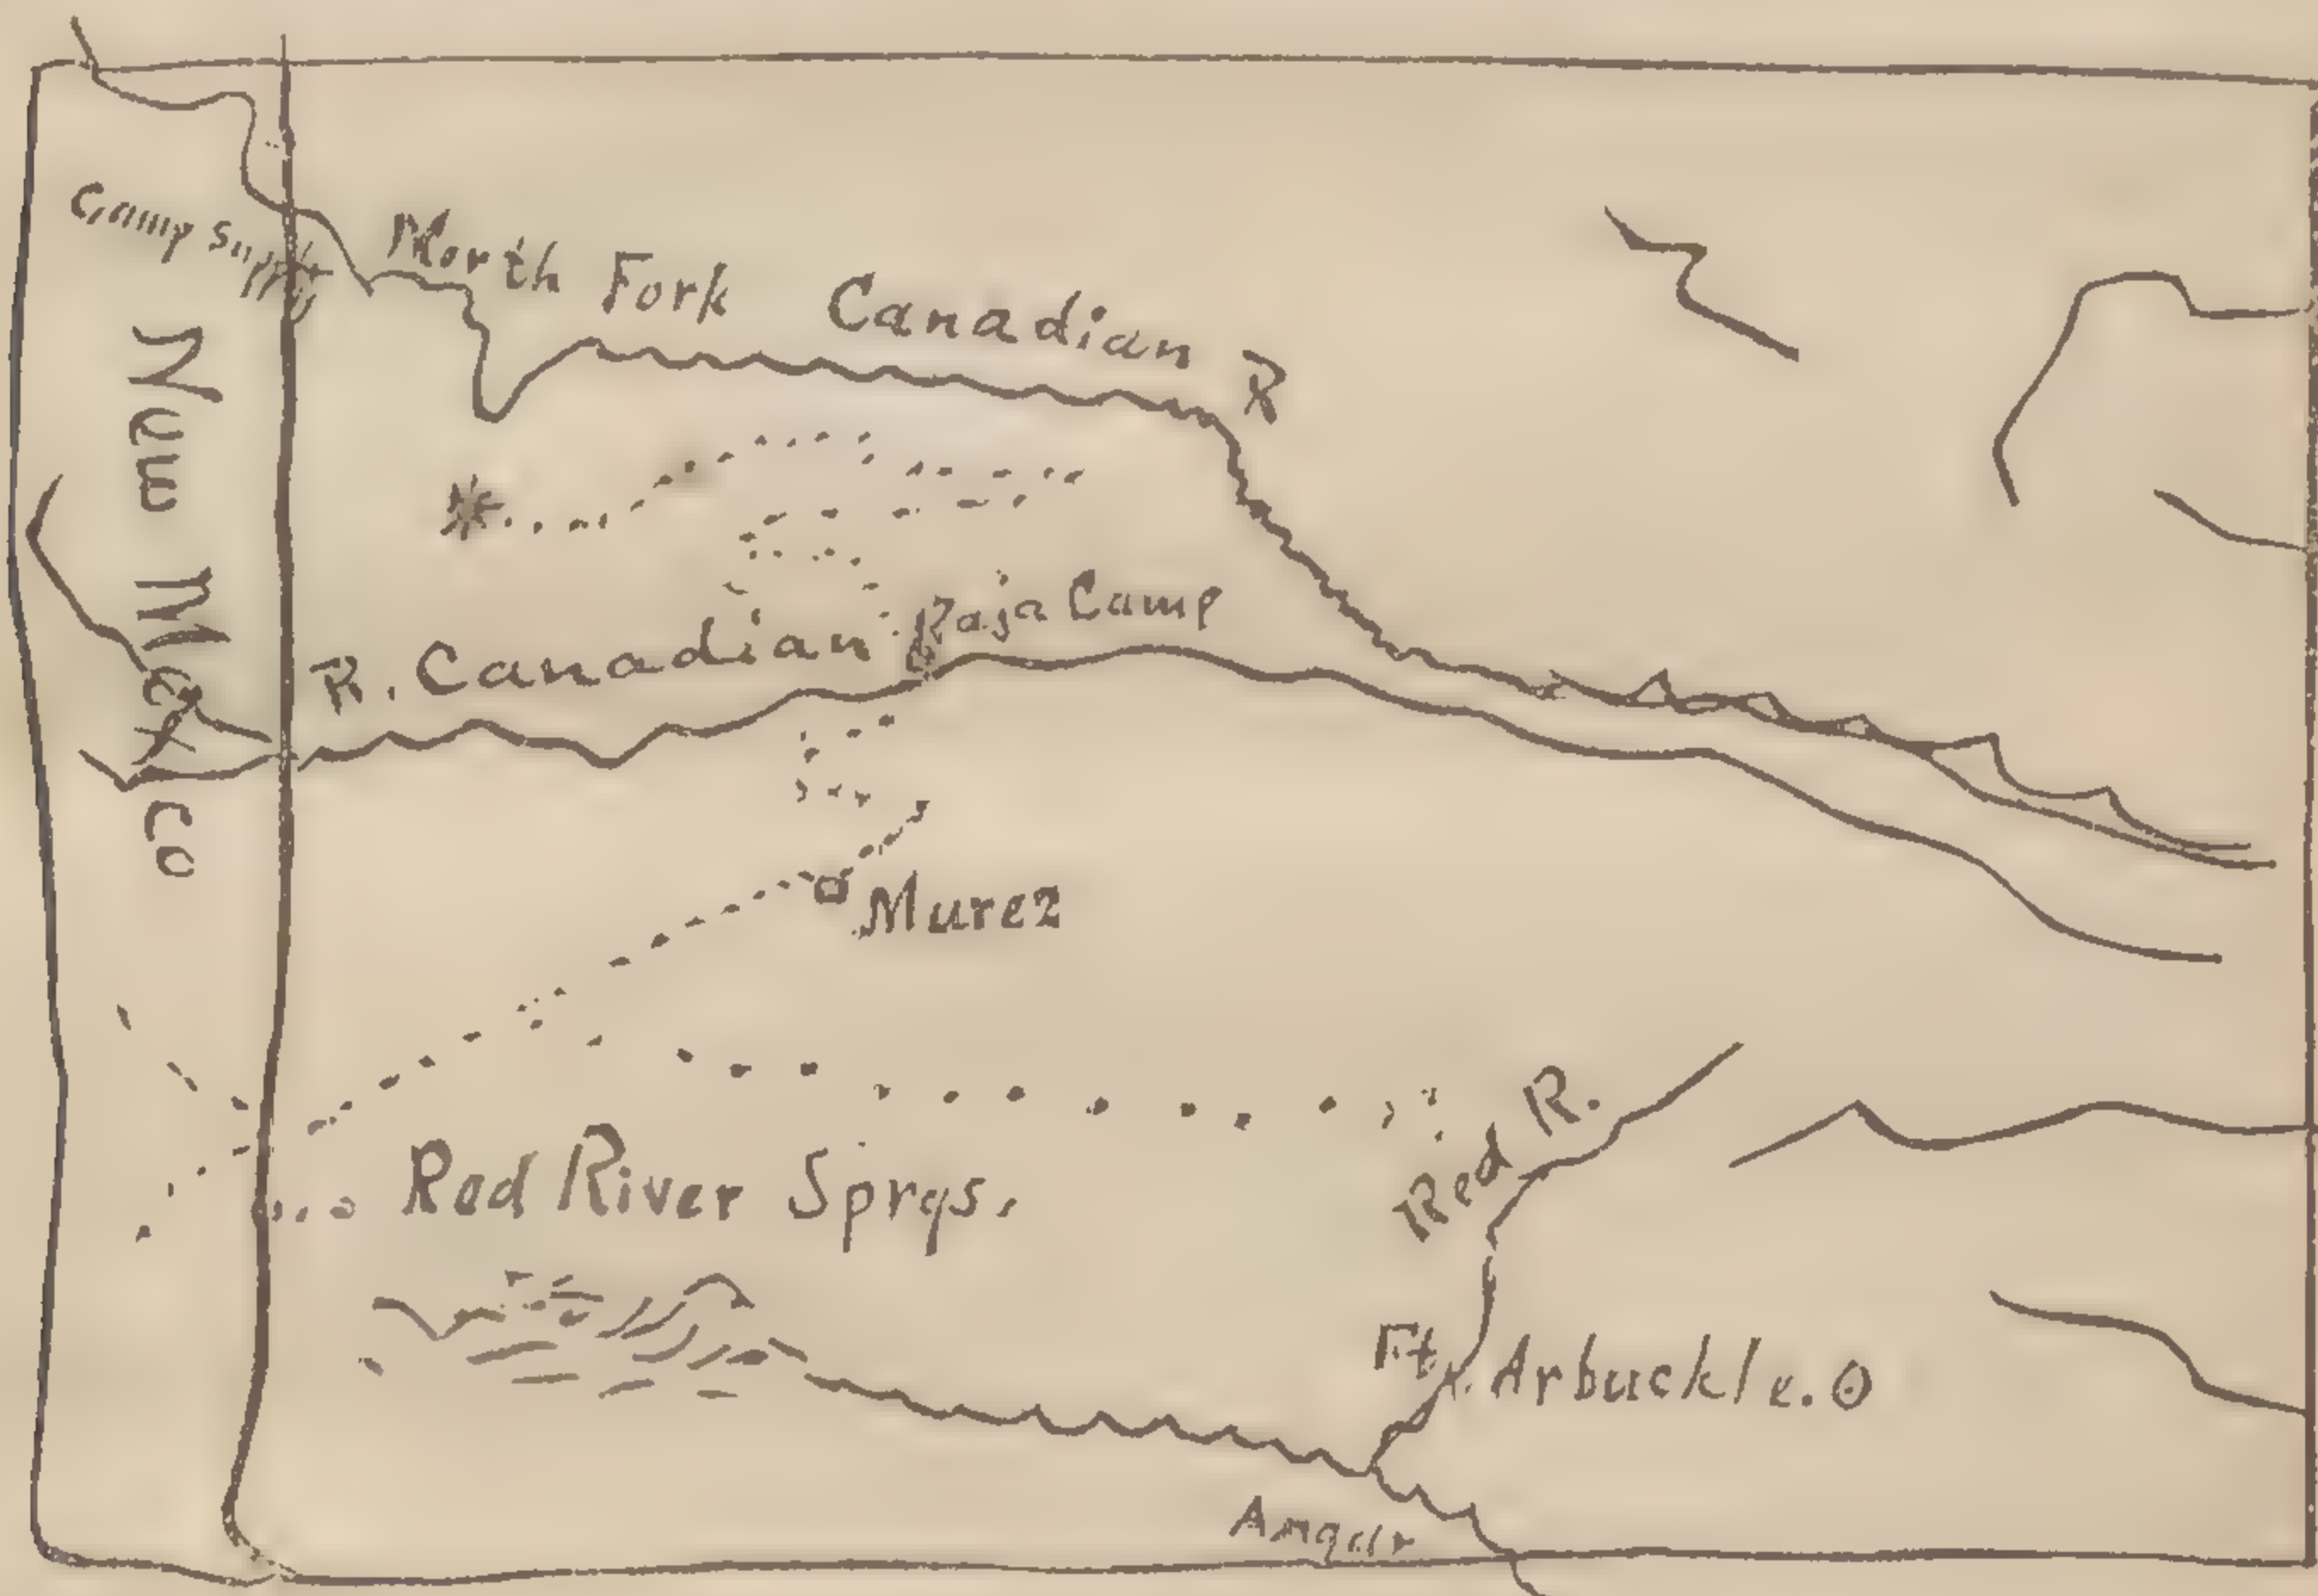 Camp Supply
North Fork Canadian R
New Mexico
R. Canadian
Raja Camp
Murez
Red R.
Red River Sprgs.
Ft. Arbuckle. O